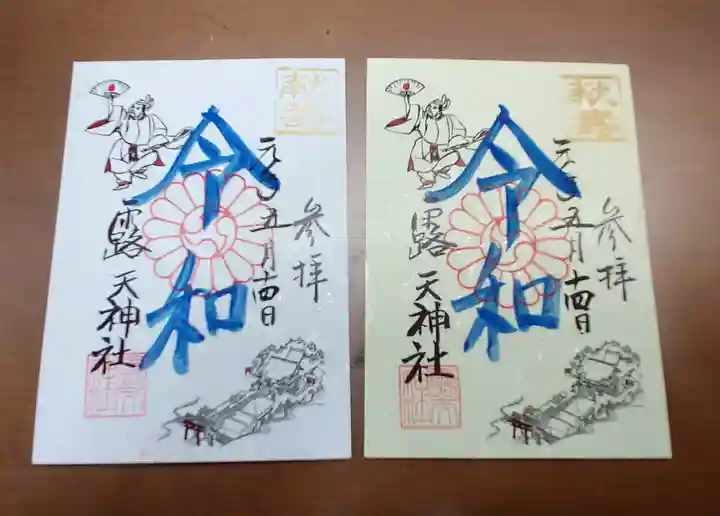 参拝
令和
元年五月十四日
露天神社
参拝
令和
元年五月十四日
露天神社